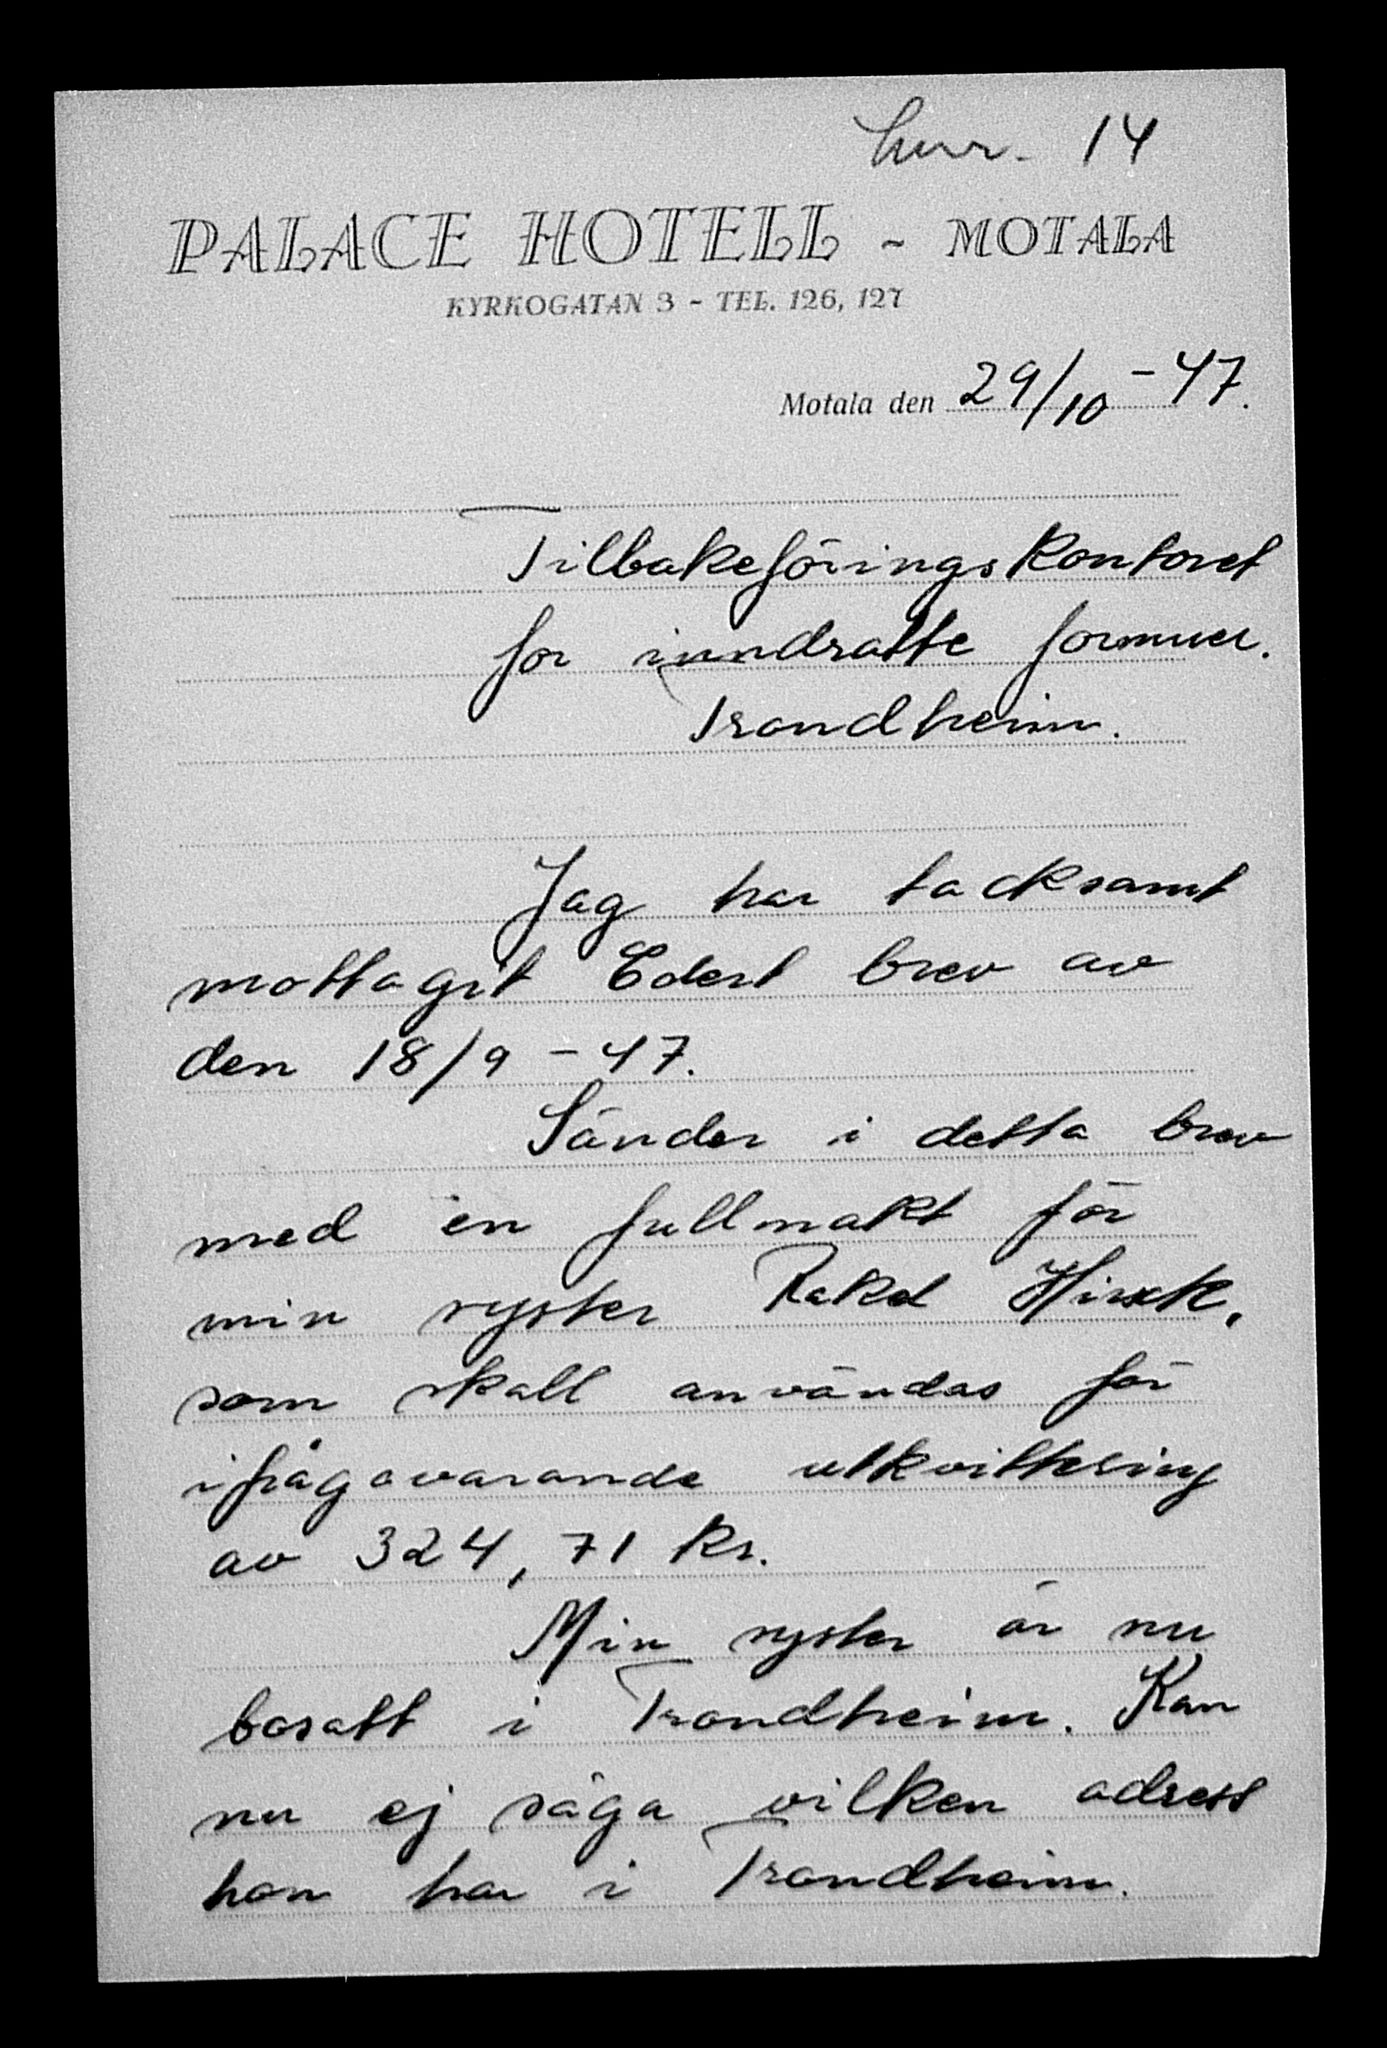 14
PALACE HOTELL - MOTALA
KYRKOGATAN 3 - TEL. 126, 127
Motala den 29/10 - 47.
Tilbakeföringskontoret
for inndratte formuer.
Trondheim.
Jag har tacksamt
mottagit Edert brev av
den 18/9 - 47.
Sänder i detta brev
med en fullmakt för
min syster Rakel
som skall användas för
ifrågavarande utkvittering
av 324,71 kr.
Min syster är nu
bosatt i Trondheim. Kan
nu ej säga vilken adress
hon har i Trondheim.